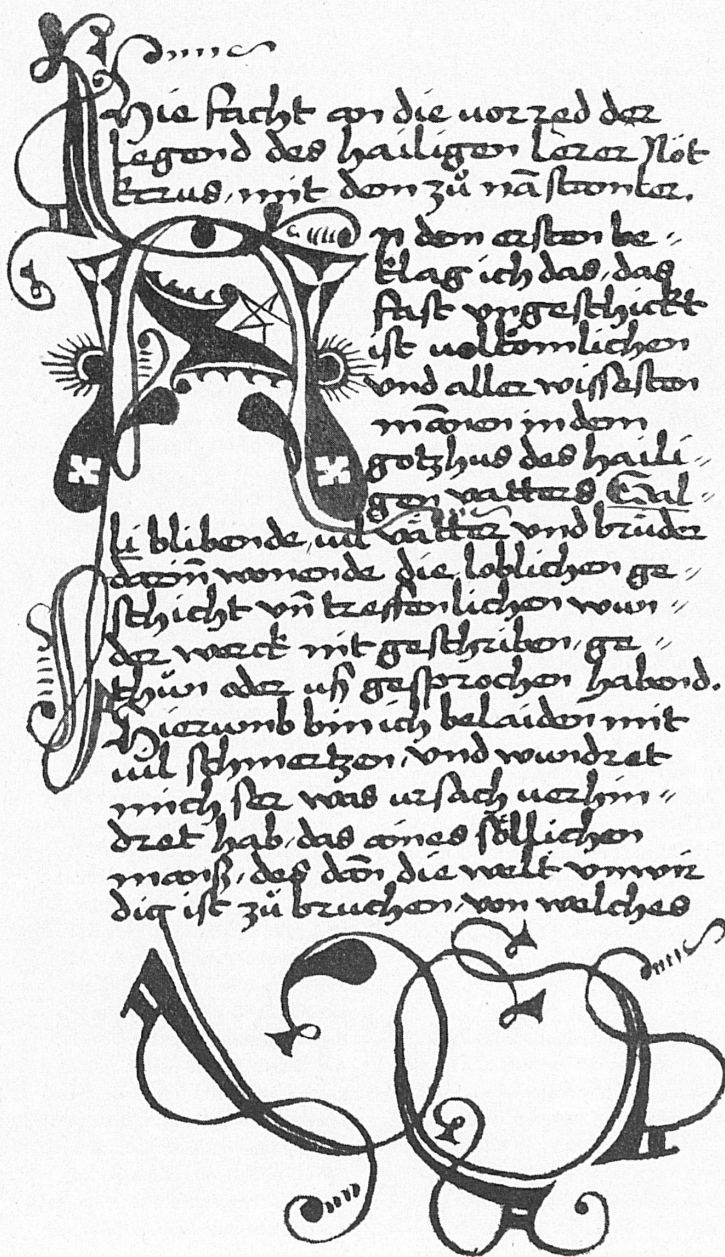 Hie facht an die vorred der
legend des hailigen lerer Nöt
kerus, mit dem zů nā stamler.
An dem ersten be〃
klag ich das, das
fast ungeschickt
ist volkōmlichen
und aller wissesten
mānen in dem
gotzhus des haili〃
gen vatters Gal〃
li blibende, vil vätter und brůder
darin̄ wonende die loblichen ge〃
schicht vn̄ treffenlichen wun〃
der werck nit geschriben, ge〃
thůn oder uß gesprochen habend.
Hierumb bin ich beladen mit
vil schmertzen, und wundret
mich ser was ursach verhin〃
dret hab, das aines söllichen
manß, des dan̄ die welt unwir
dig ist zů bruchen, von welches